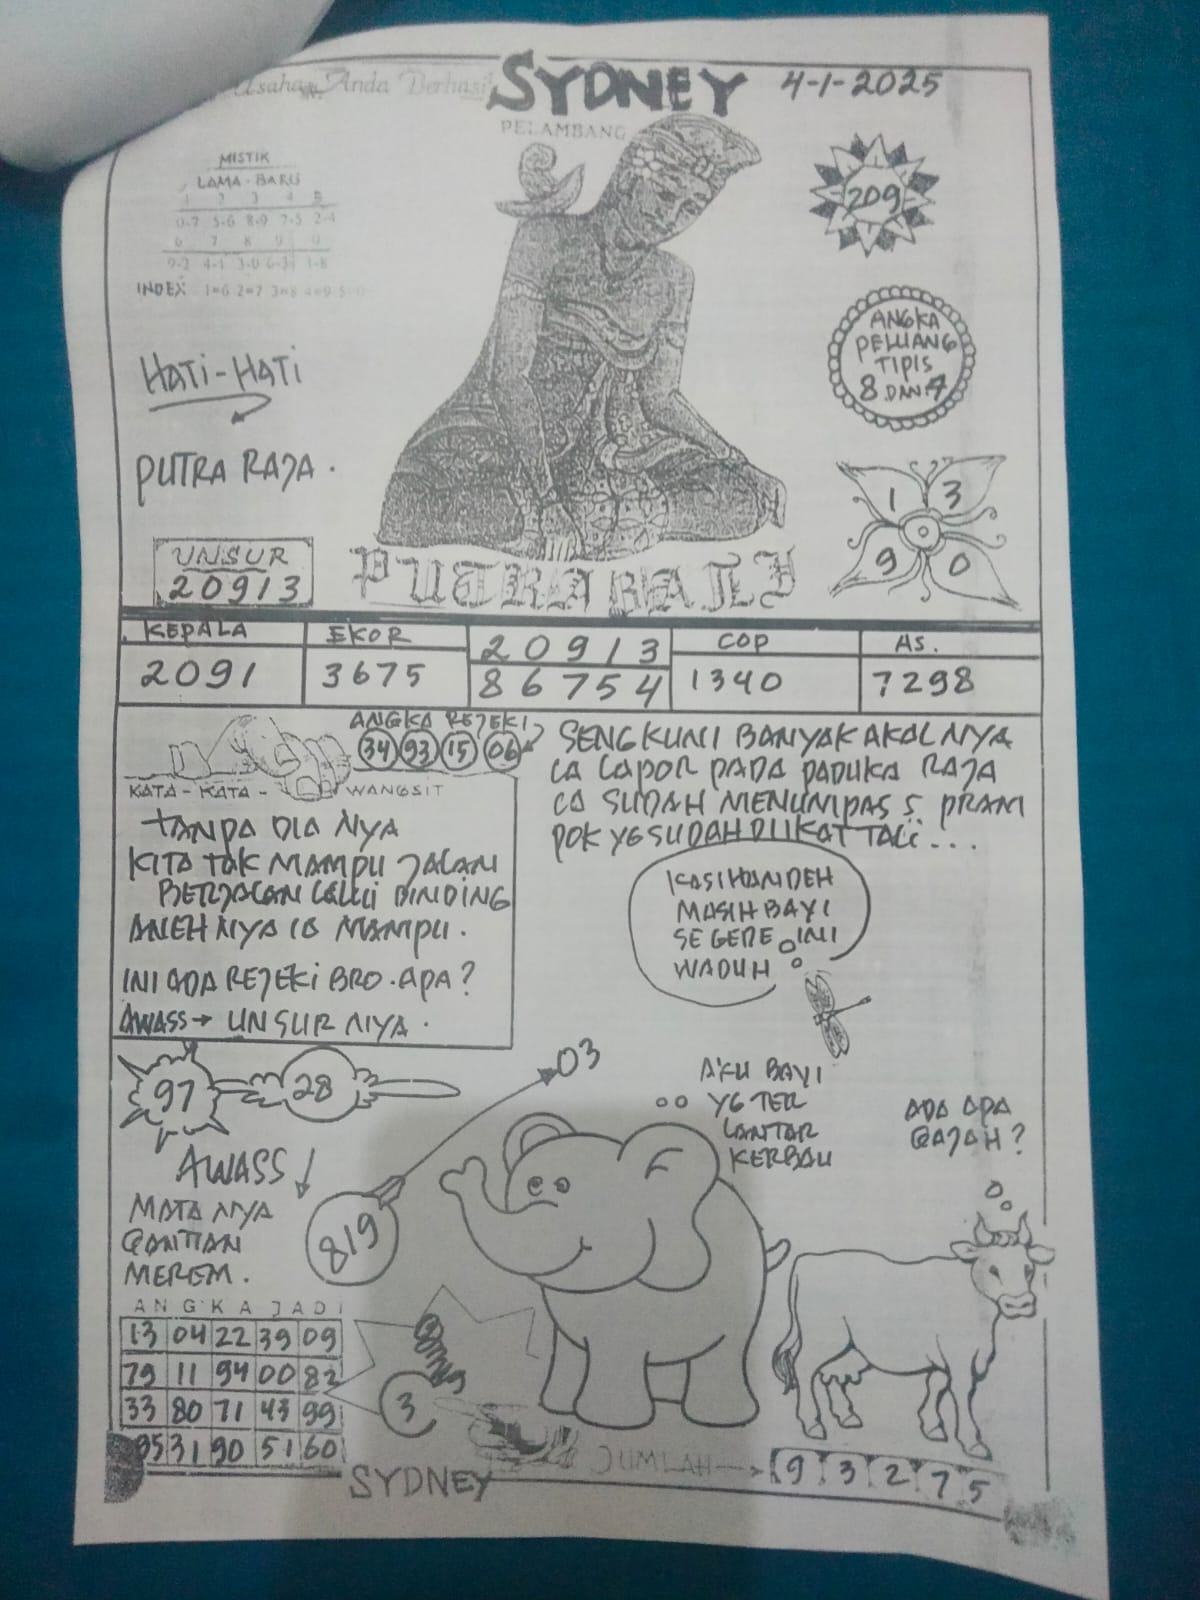 Usaha Anda Berhasil
SYDNEY 4-1-2025
PELAMBANG
MISTIK
LAMA - BARU
1 2 3 4 5
0-7 5-6 8-9 7-5 2-4
6 7 8 9 0
9-2 4-1 3-0 6-3 1-8
INDEX 1=6 2=7 3=8 4=9 5=0
209
ANGKA
PELUANG
TIPIS
8 DAN 7
HATI-HATI
PUTRA RAJA.
1 3
9 0
UNSUR
20913
PUTRA BALI
KEPALA EKOR 20913 COP AS.
2091 3675 86754 1340 7298
ANGKA REJEKI
34 93 15 06
KATA - KATA - WANGSIT
TANPA DIA NYA
KITA TAK MAMPU JALAN
BERJALAN LALUI DINDING
ANEH NYA IA MAMPU.
INI ADA REJEKI BRO. APA?
AWASS → UNSUR NYA.
SENGKUNI BANYAK AKAL NYA
LA LAPOR PADA PADUKA RAJA
LA SUDAH MENUMPAS 5. PRAM
POK YG SUDAH DI IKAT TALI...
KASIHAN DEH
MASIH BAYI
SEGEDE INI
WADUH
97 28
03
AKU BAYI
YG TER
LANTAR
KERBAU
ADA APA
GAJAH?
AWASS
MATA NYA
GANTIAN
MEREM.
819
ANGKA JADI
13 04 22 39 09
79 11 94 00 82
33 80 71 43 99
95 31 90 51 60
3
JUMLAH → 9 3 2 7 5
SYDNEY